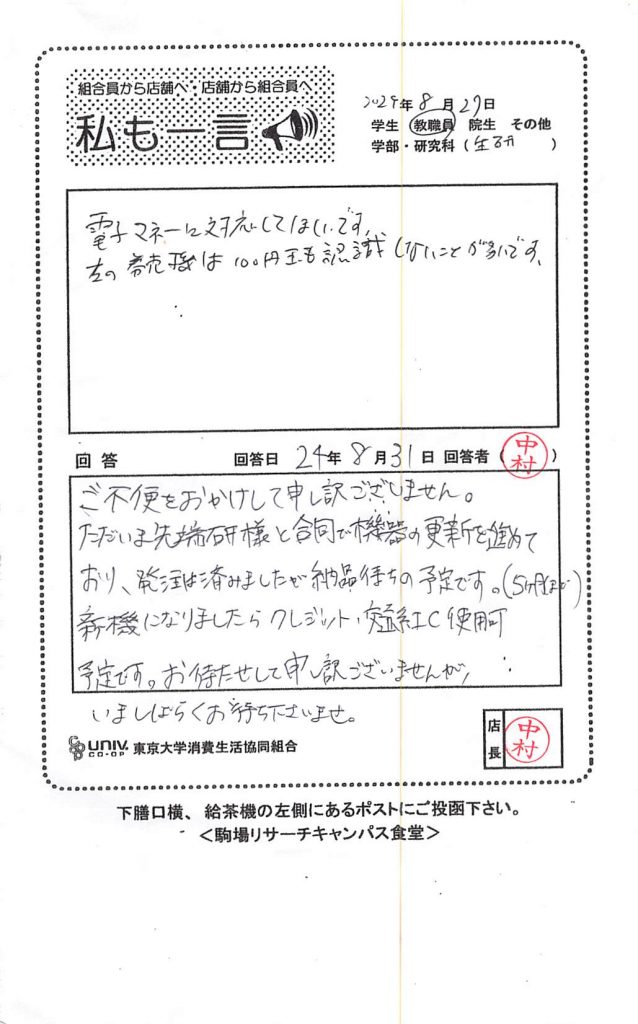 組合員から店舗へ・店舗から組合員へ
私も一言
2024年8月27日
学生 教職員 院生 その他
学部・研究科(生研)
電子マネーに対応してほしいです。
左の券売機は100円玉も認識しないことが多いです。
回答 回答日 24年8月31日 回答者(中村)
ご不便をおかけして申し訳ございません。
ただいま先端研様と合同で機器の更新を進めて
おり、発注は済みましたが納品待ちの予定です。
新機になりましたらクレジット・交通系IC使用可
予定です。お待たせして申し訳ございませんが、
いましばらくお待ち下さいませ。
UNIV. CO-OP 東京大学消費生活協同組合
店長 中村
下膳口横、給茶機の左側にあるポストにご投函下さい。
<駒場リサーチキャンパス食堂>